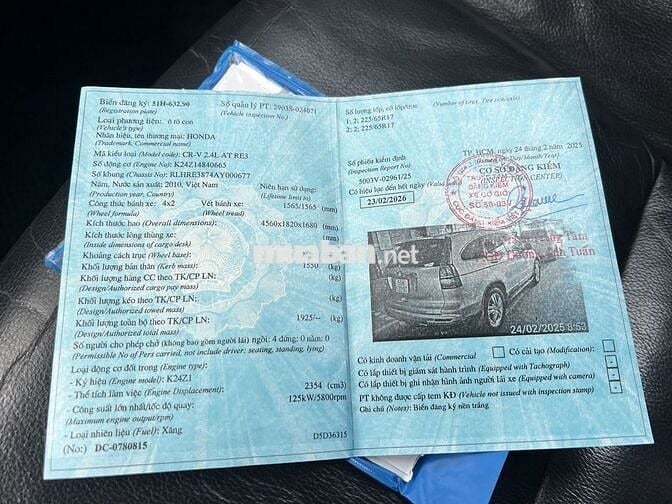 Biển đăng ký: 51H-632.90
(Registration plate)
Số quản lý PT: 2903S-024071
(Vehicle inspection No.)
Loại phương tiện: ô tô con
(Vehicle's type)
Nhãn hiệu, tên thương mại: HONDA
(Trademark, Commercial name)
Mã kiểu loại (Model code): CR-V 2.4L AT RE3
Số động cơ (Engine No): K24Z14840665
Số khung (Chassis No): RLHRE3874AY000677
Năm, Nước sản xuất: 2010, Việt Nam
(Production year, Country)
Niên hạn sử dụng:
(Lifetime limit to)
Công thức bánh xe: 4x2
(Wheel formula)
Vết bánh xe: 1565/1565 (mm)
(Wheel tread)
Kích thước bao (Overall dimensions): 4560x1820x1680 (mm)
Kích thước lòng thùng xe: (mm)
(Inside dimensions of cargo desk)
Khoảng cách trục (Wheel base): (mm)
Khối lượng bản thân (Kerb mass): 1550 (kg)
Khối lượng hàng CC theo TK/CP LN: (kg)
(Design/Authorized cargo pay mass)
Khối lượng kéo theo TK/CP LN: (kg)
(Design/Authorized towed mass)
Khối lượng toàn bộ theo TK/CP LN: 1925/-- (kg)
(Design/Authorized total mass)
Số người cho phép chở (không bao gồm người lái) ngồi: 4 đứng: 0 nằm: 0
(Permissible No of Pers carried, not include driver: seating, standing, lying)
Loại động cơ đốt trong (Engine type):
- Ký hiệu (Engine model): K24Z1
- Thể tích làm việc (Engine Displacement): 2354 (cm3)
- Công suất lớn nhất/tốc độ quay: 125kW/5800rpm
(Maximum engine output/rpm)
- Loại nhiên liệu (Fuel): Xăng
(No: ) DC-0780815
D5D36315
Số lượng lốp, cỡ lốp/trục
(Number of tires, Tire size/axle)
1; 2; 225/65R17
2; 2; 225/65R17
Số phiếu kiểm định
(Inspection Report No)
5003V-02961/25
Có hiệu lực đến hết ngày (Valid
23/02/2026
TP. HCM, ngày 24 tháng 2 năm 2025
(Issued on: Day/Month/Year)
CƠ SỞ ĐĂNG KIỂM
CENTER)
ĐĂNG KIỂM
XE CƠ GIỚI
SỐ 50-03V
muaban.net
24/02/2025 8:53
Có kinh doanh vận tải (Commercial
Có cải tạo (Modification):
Có lắp thiết bị giám sát hành trình (Equipped with Tachograph)
Có lắp thiết bị ghi nhận hình ảnh người lái xe (Equipped with camera)
PT không được cấp tem KĐ (Vehicle not issued with inspection stamp)
Ghi chú (Notes): Biển đăng ký nền trắng